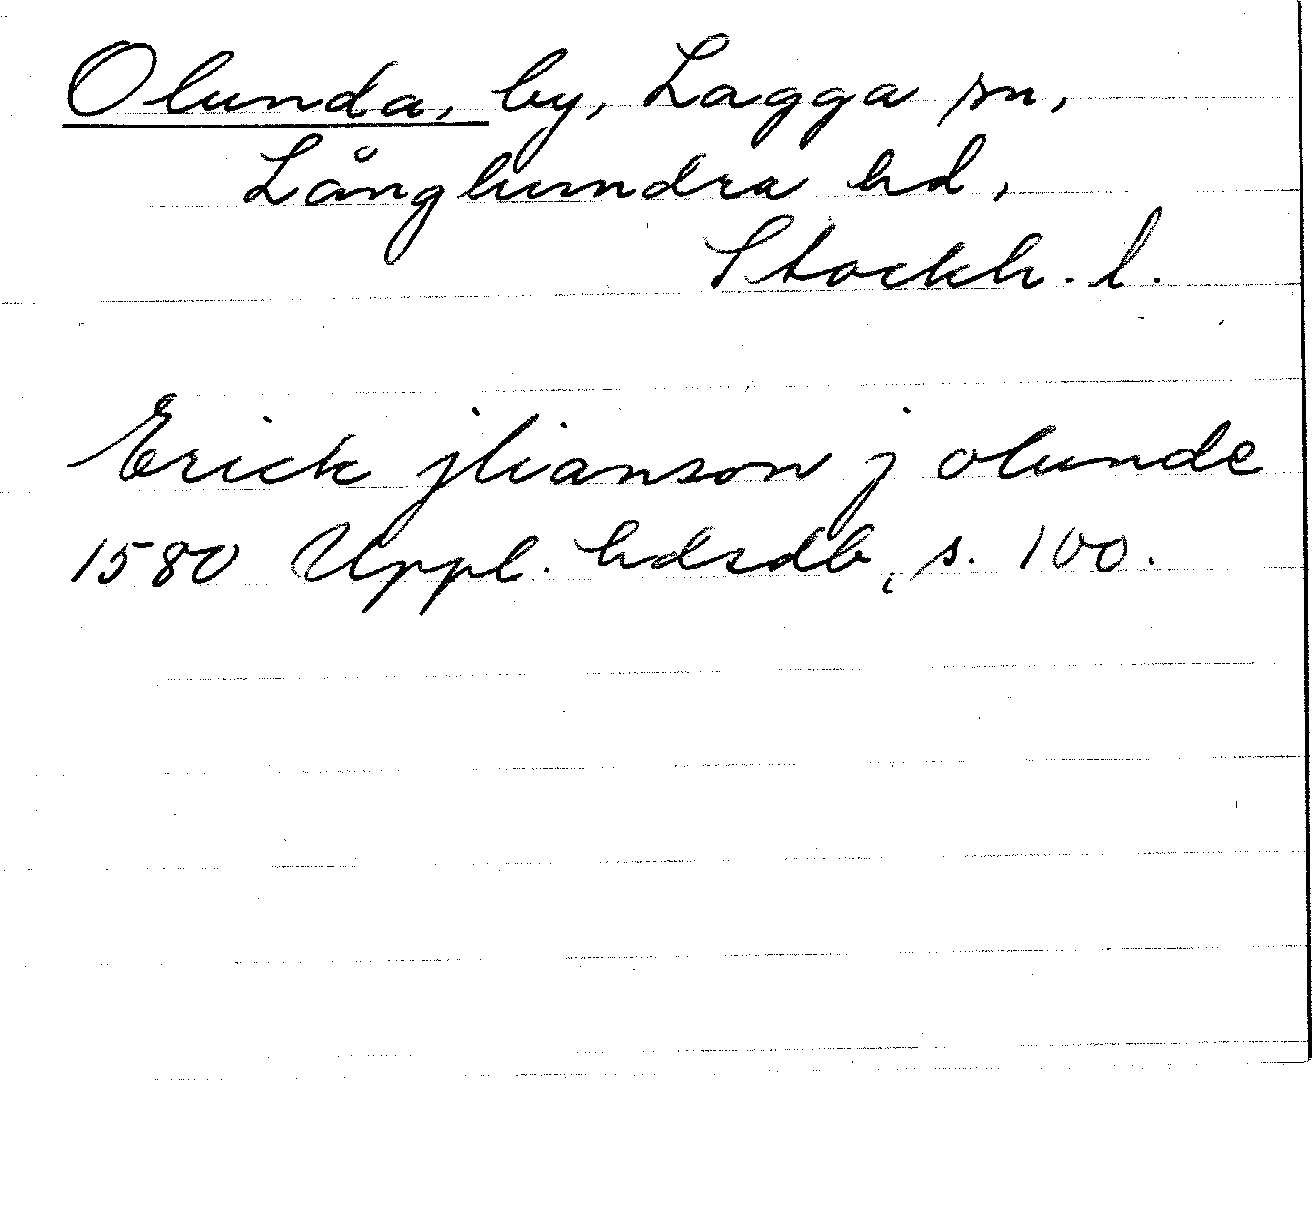 Olunda, by, Lagga sn,
Långhundra hd,
Stockh. l.
Erick jlianson j olunde
1580 Uppl. hdrdb, s. 100.